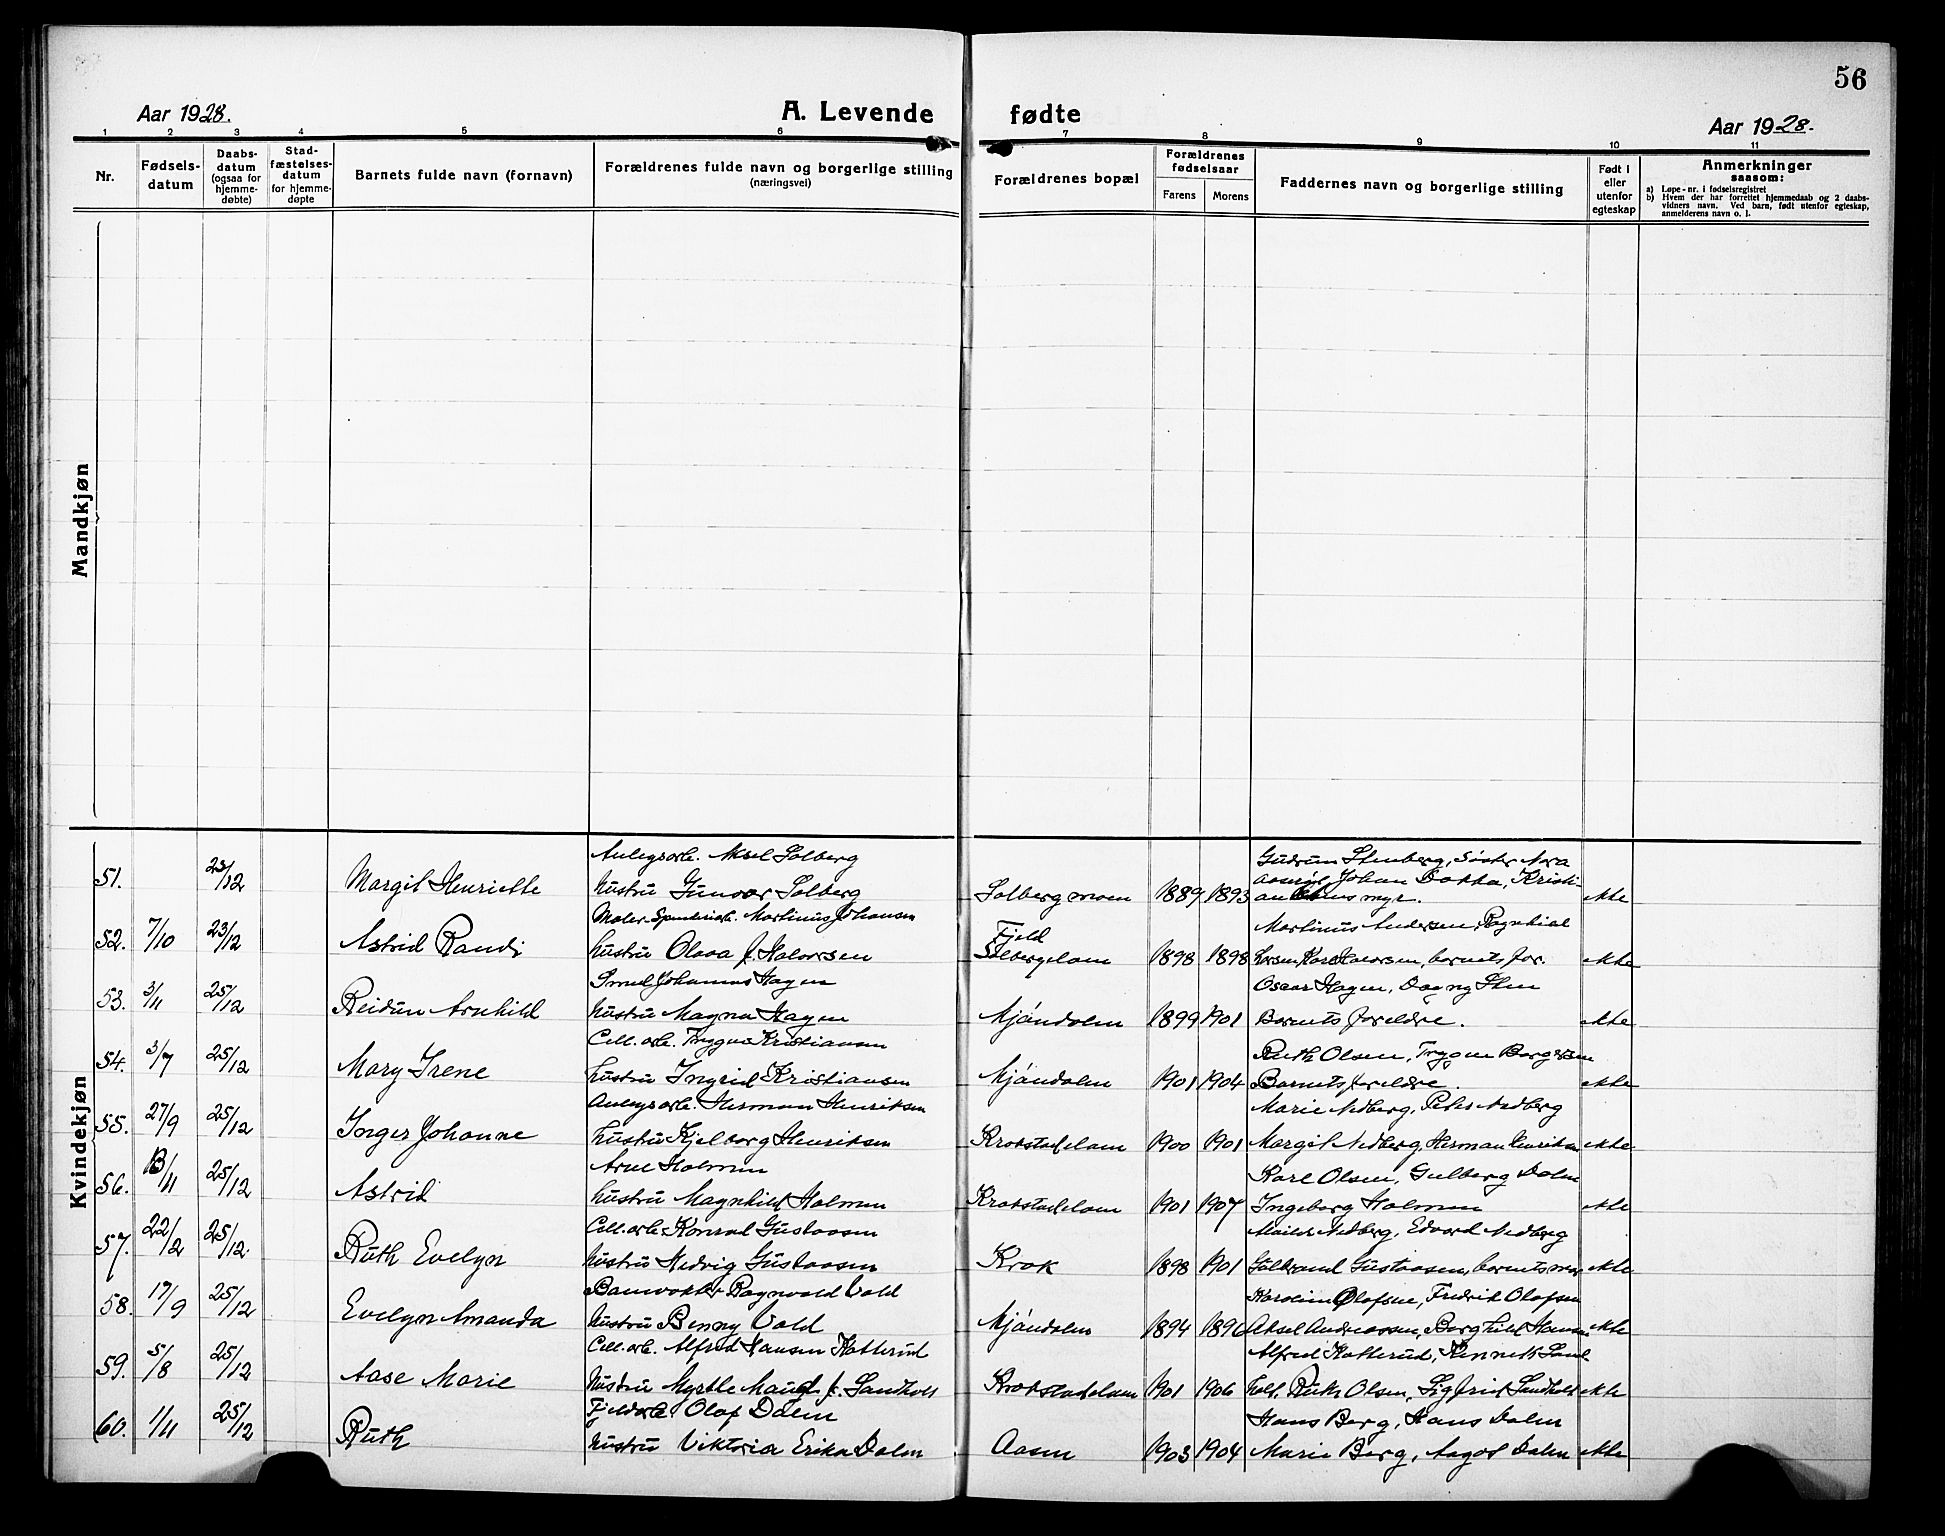 56
Aar 1928.
A. Levende fødte
Aar 1928.
1 2 3 4 5 6 7 8 9 10 11
Nr.
Fødsels-
datum
Daabs-
datum
(ogsaa for
hjemme-
døbte)
Stad-
fæstelses-
datum
for hjemme-
døpte
Barnets fulde navn (fornavn)
Forældrenes fulde navn og borgerlige stilling
(næringsvei)
Forældrenes bopæl
Forældrenes
fødselsaar
Farens Morens
Faddernes navn og borgerlige stilling
Født i
eller
utenfor
egteskap
Anmerkninger
saasom:
a) Løpe-nr. i fødselsregistret
b) Hvem der har forrettet hjemmedaab og 2 daabs-
vidners navn. Ved barn, født utenfor egteskap,
anmelderens navn o. l.
Mandkjøn
Kvindekjøn
Aksel Solberg Gudrun Stenberg, Nora
51. 23/12 Margit Henriette hustru Gunvor Solberg Solbergmoen 1889 1893 Johan Dokka, Kristi-
ekte
Martinus Johansen Martinus Andersen, Ragnhild
52. 7/10 23/12 Astrid Randi hustru Olava f. Halvorsen Fjeld
Solbergelven 1898 1898 Karl Halvorsen, barnets for. ekte
Smed Johannes Hagen Oscar Hagen, Dagny Sten
53. 3/11 25/12 Reidun Arnhild hustru Magna Hagen Mjöndalen 1899 1901 Barnets foreldre. ekte
Cell.arb. Trygve Kristiansen Ruth Olsen, Trygve Borgersen
54. 3/7 25/12 Mary Irene hustru Ingrid Kristiansen Mjöndalen 1901 1904 Barnets foreldre. ekte
Herman Henriksen Marie Nedberg, Peder Nedberg
55. 27/9 25/12 Inger Johanne hustru Kjelborg Henriksen Krokstadelven 1900 1901 Margit Nedberg, Herman Henriksen ekte
Arne Holmen Karl Olsen, Gulberg Dalen
56. 13/11 25/12 Astrid hustru Magnhild Holmen Krokstadelven 1901 1907 Ingeborg Holmen ekte
Cell.arb. Konrad Gustavsen Nedberg, Edvard Nedberg
57. 22/2 25/12. Ruth Evelyn hustru Hedvig Gustavsen Krok 1898 1901 Gulbrand Gustavsen, barnets mor ekte
Banevokter Ragnvald Vold Karoline Olafsen, Fredrik Olafsen
58. 17/9 25/12 Evelyn Amanda hustru Benny Vold Mjöndalen 1894 1896 Aksel Andreassen, Borghild ekte
Cell.arb. Alfred Hansen Katterud Alfred Katterud, Kenneth Sand-
59. 5/8 25/12 Aase Marie hustru Myrtle Maud f. Sandholt Krokstadelven 1901 1906 holt, Ruth Olsen, Sigfrid Sandholt ekte
Olaf Dalen Hans Berg, Hans Dalen
60. 1/11 25/12 Ruth hustru Viktoria Erika Dalen Aasen 1903 1904 Marie Berg, Aagot Dalen ekte